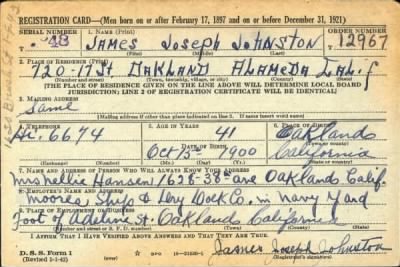 REGISTRATION CARD—(Men born on or after February 17, 1897 and on or before December 31, 1921)
SERIAL NUMBER 1. NAME (Print) ORDER NUMBER
48 JAMES Joseph JOHNSTON 12967
(First) (Middle) (Last)
2. PLACE OF RESIDENCE (Print)
720-17 St OAKLAND ALAMEDA CALif
(Number and street) (Town, township, village, or city) (County) (State)
[THE PLACE OF RESIDENCE GIVEN ON THE LINE ABOVE WILL DETERMINE LOCAL BOARD
JURISDICTION; LINE 2 OF REGISTRATION CERTIFICATE WILL BE IDENTICAL]
3. MAILING ADDRESS
Same
[Mailing address if other than place indicated on line 2. If same insert word same]
4. TELEPHONE 5. AGE IN YEARS 6. PLACE OF BIRTH
6674 41 Oakland
DATE OF BIRTH
Oct 15 1900 California
(Exchange) (Number) (Mo.) (Day) (Yr.) (State or country)
7. NAME AND ADDRESS OF PERSON WHO WILL ALWAYS KNOW YOUR ADDRESS
Mrs Nellie Hansen 1628-38th ave Oakland Calif.
8. EMPLOYER'S NAME AND ADDRESS
Moores Ship & Dry Dock Co. in Navy Yard
9. PLACE OF EMPLOYMENT OR BUSINESS
Foot of Adeline St. Oakland California
(Number and street or R. F. D. number) (Town) (County) (State)
I AFFIRM THAT I HAVE VERIFIED ABOVE ANSWERS AND THAT THEY ARE TRUE.
D. S. S. Form 1
(Revised 1-1-42)
James Joseph Johnston
(Registrant's signature)